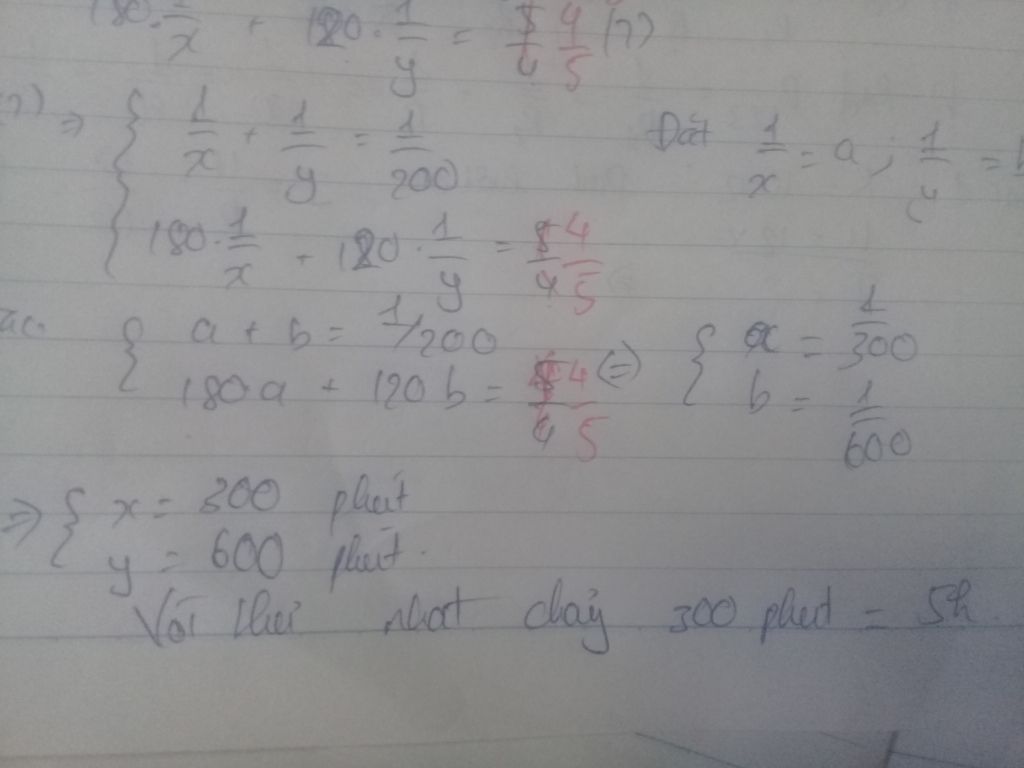 180. 1/x + 120. 1/y = 4/5 (2)
=> { 1/x + 1/y = 1/200 Đặt 1/x = a; 1/y =
180. 1/x + 120. 1/y = 4/5
{ a + b = 1/200
180a + 120b = 4/5 (=) { a = 1/300
b = 1/600
=> { x = 300 phút
y = 600 phút.
Vòi thứ nhất chảy 300 phút = 5h.